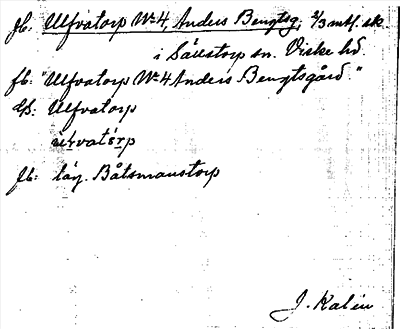 fb: Ulfvatorp No 4, Anders Bengtsg, 2/3 mtl. sk.
i Sällstorp sn. Viske hd.
fb: "Ulfvatorp No 4 Anders Bengtsgård."
Uf: Ulfvatorp
úlvatèrp
fb: låg. Båtsmanstorp
J. Kalén